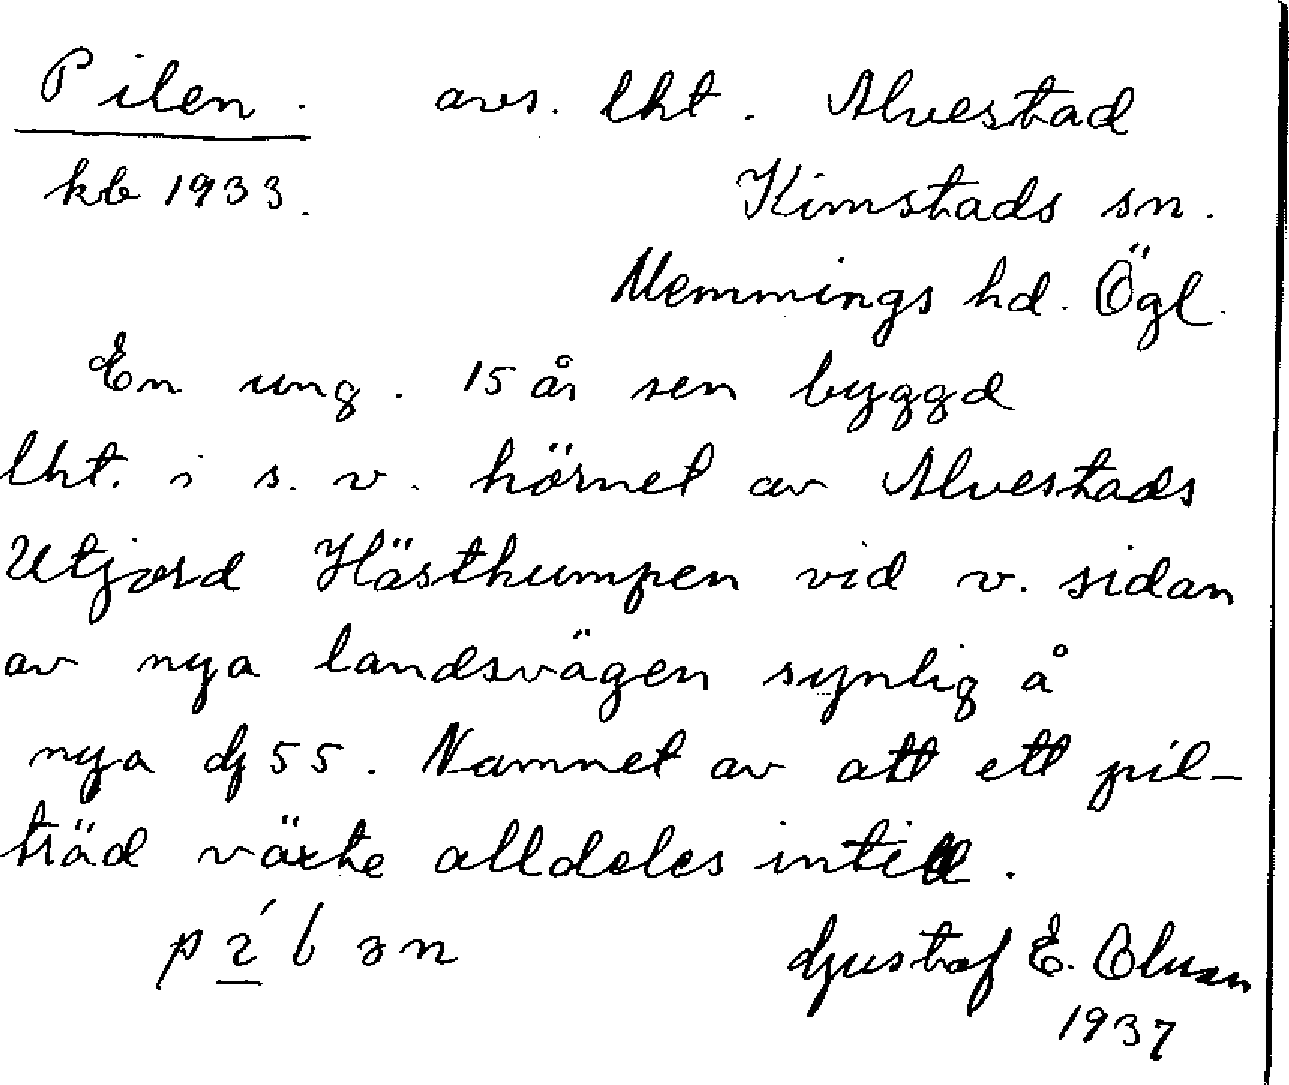 Pilen. avs. lht. Alvestad
kb 1933. Kimstads sn.
Memmings hd. Ögl.
En ung. 15 år sen byggd
lht. i s. v. hörnet av Alvestads
Utjord Hästhumpen vid v. sidan
av nya landsvägen synlig å
nya dj 55. Namnet av att ett pil-
träd växte alldeles intill.
Gustaf E. Olsson
1937